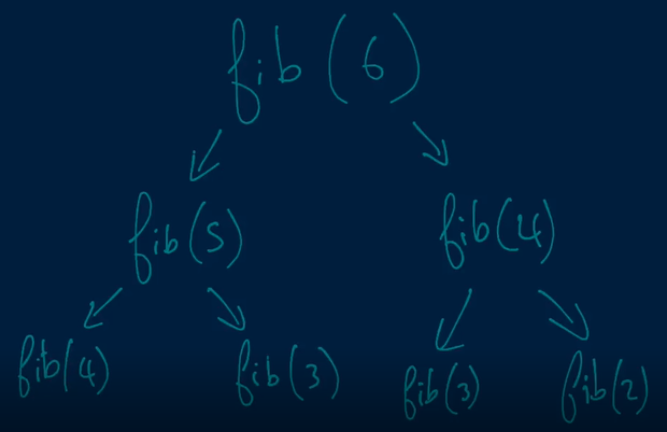 fib(6)
fib(5) fib(4)
fib(4) fib(3) fib(3) fib(2)